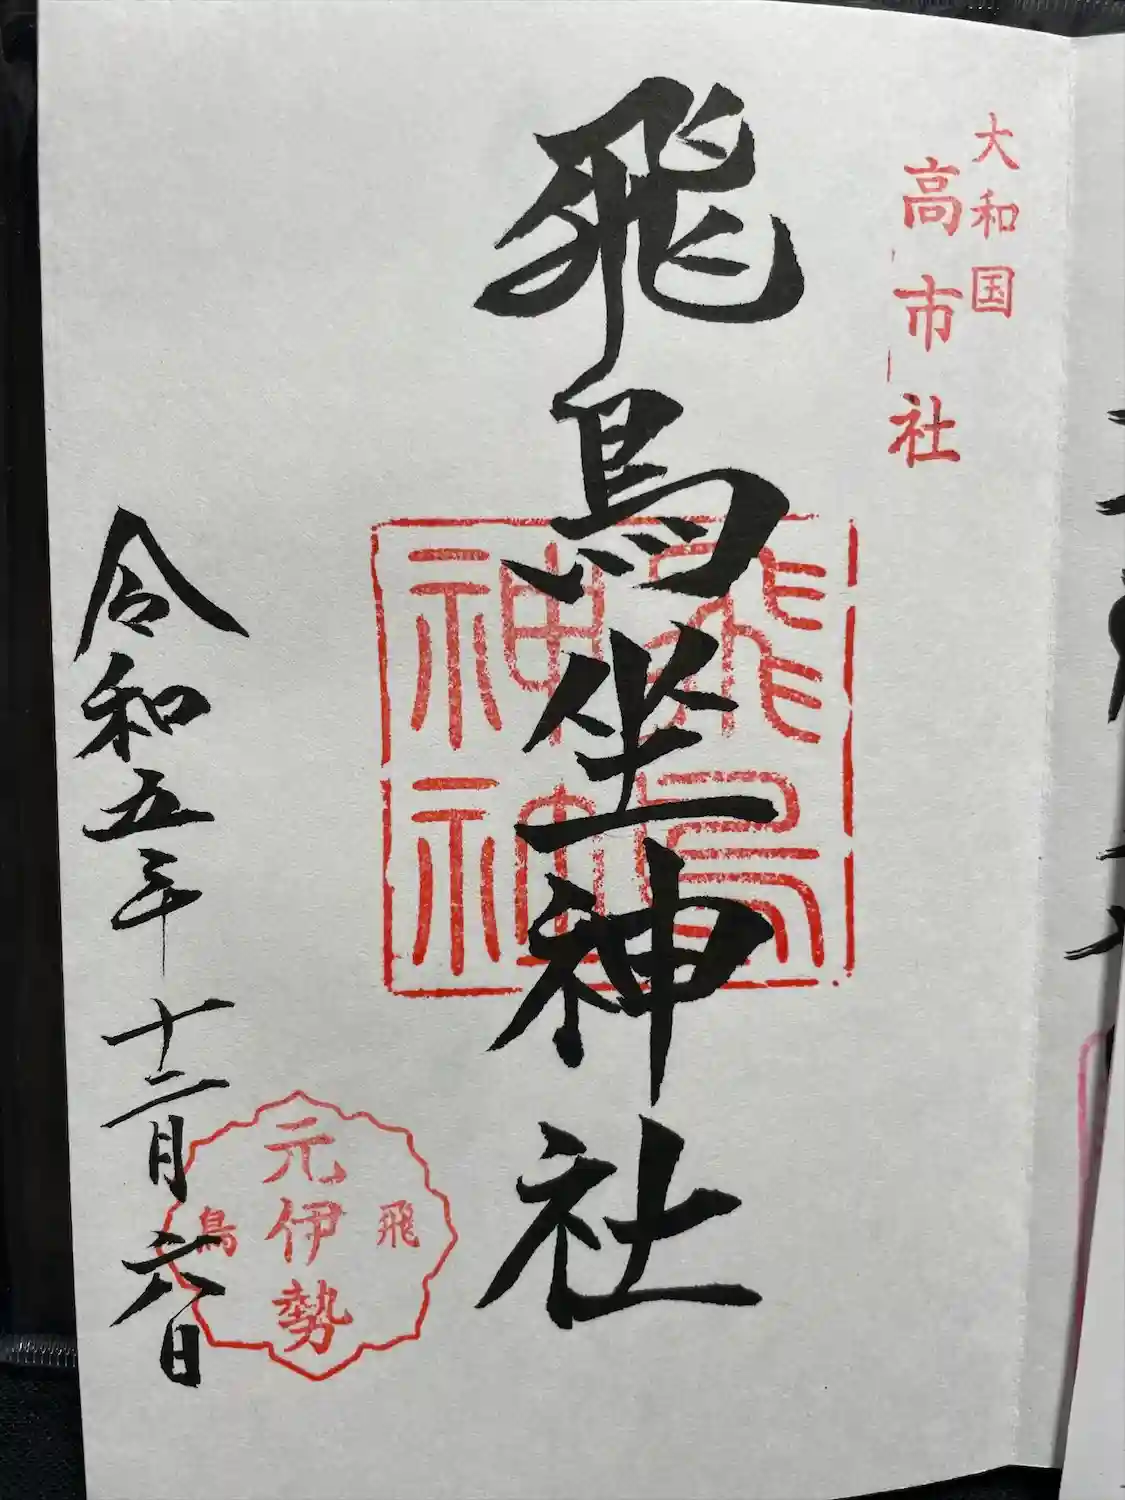 大和国
高市社
飛鳥坐神社
飛鳥
神社
飛
元伊勢
鳥
令和五年十二月六日